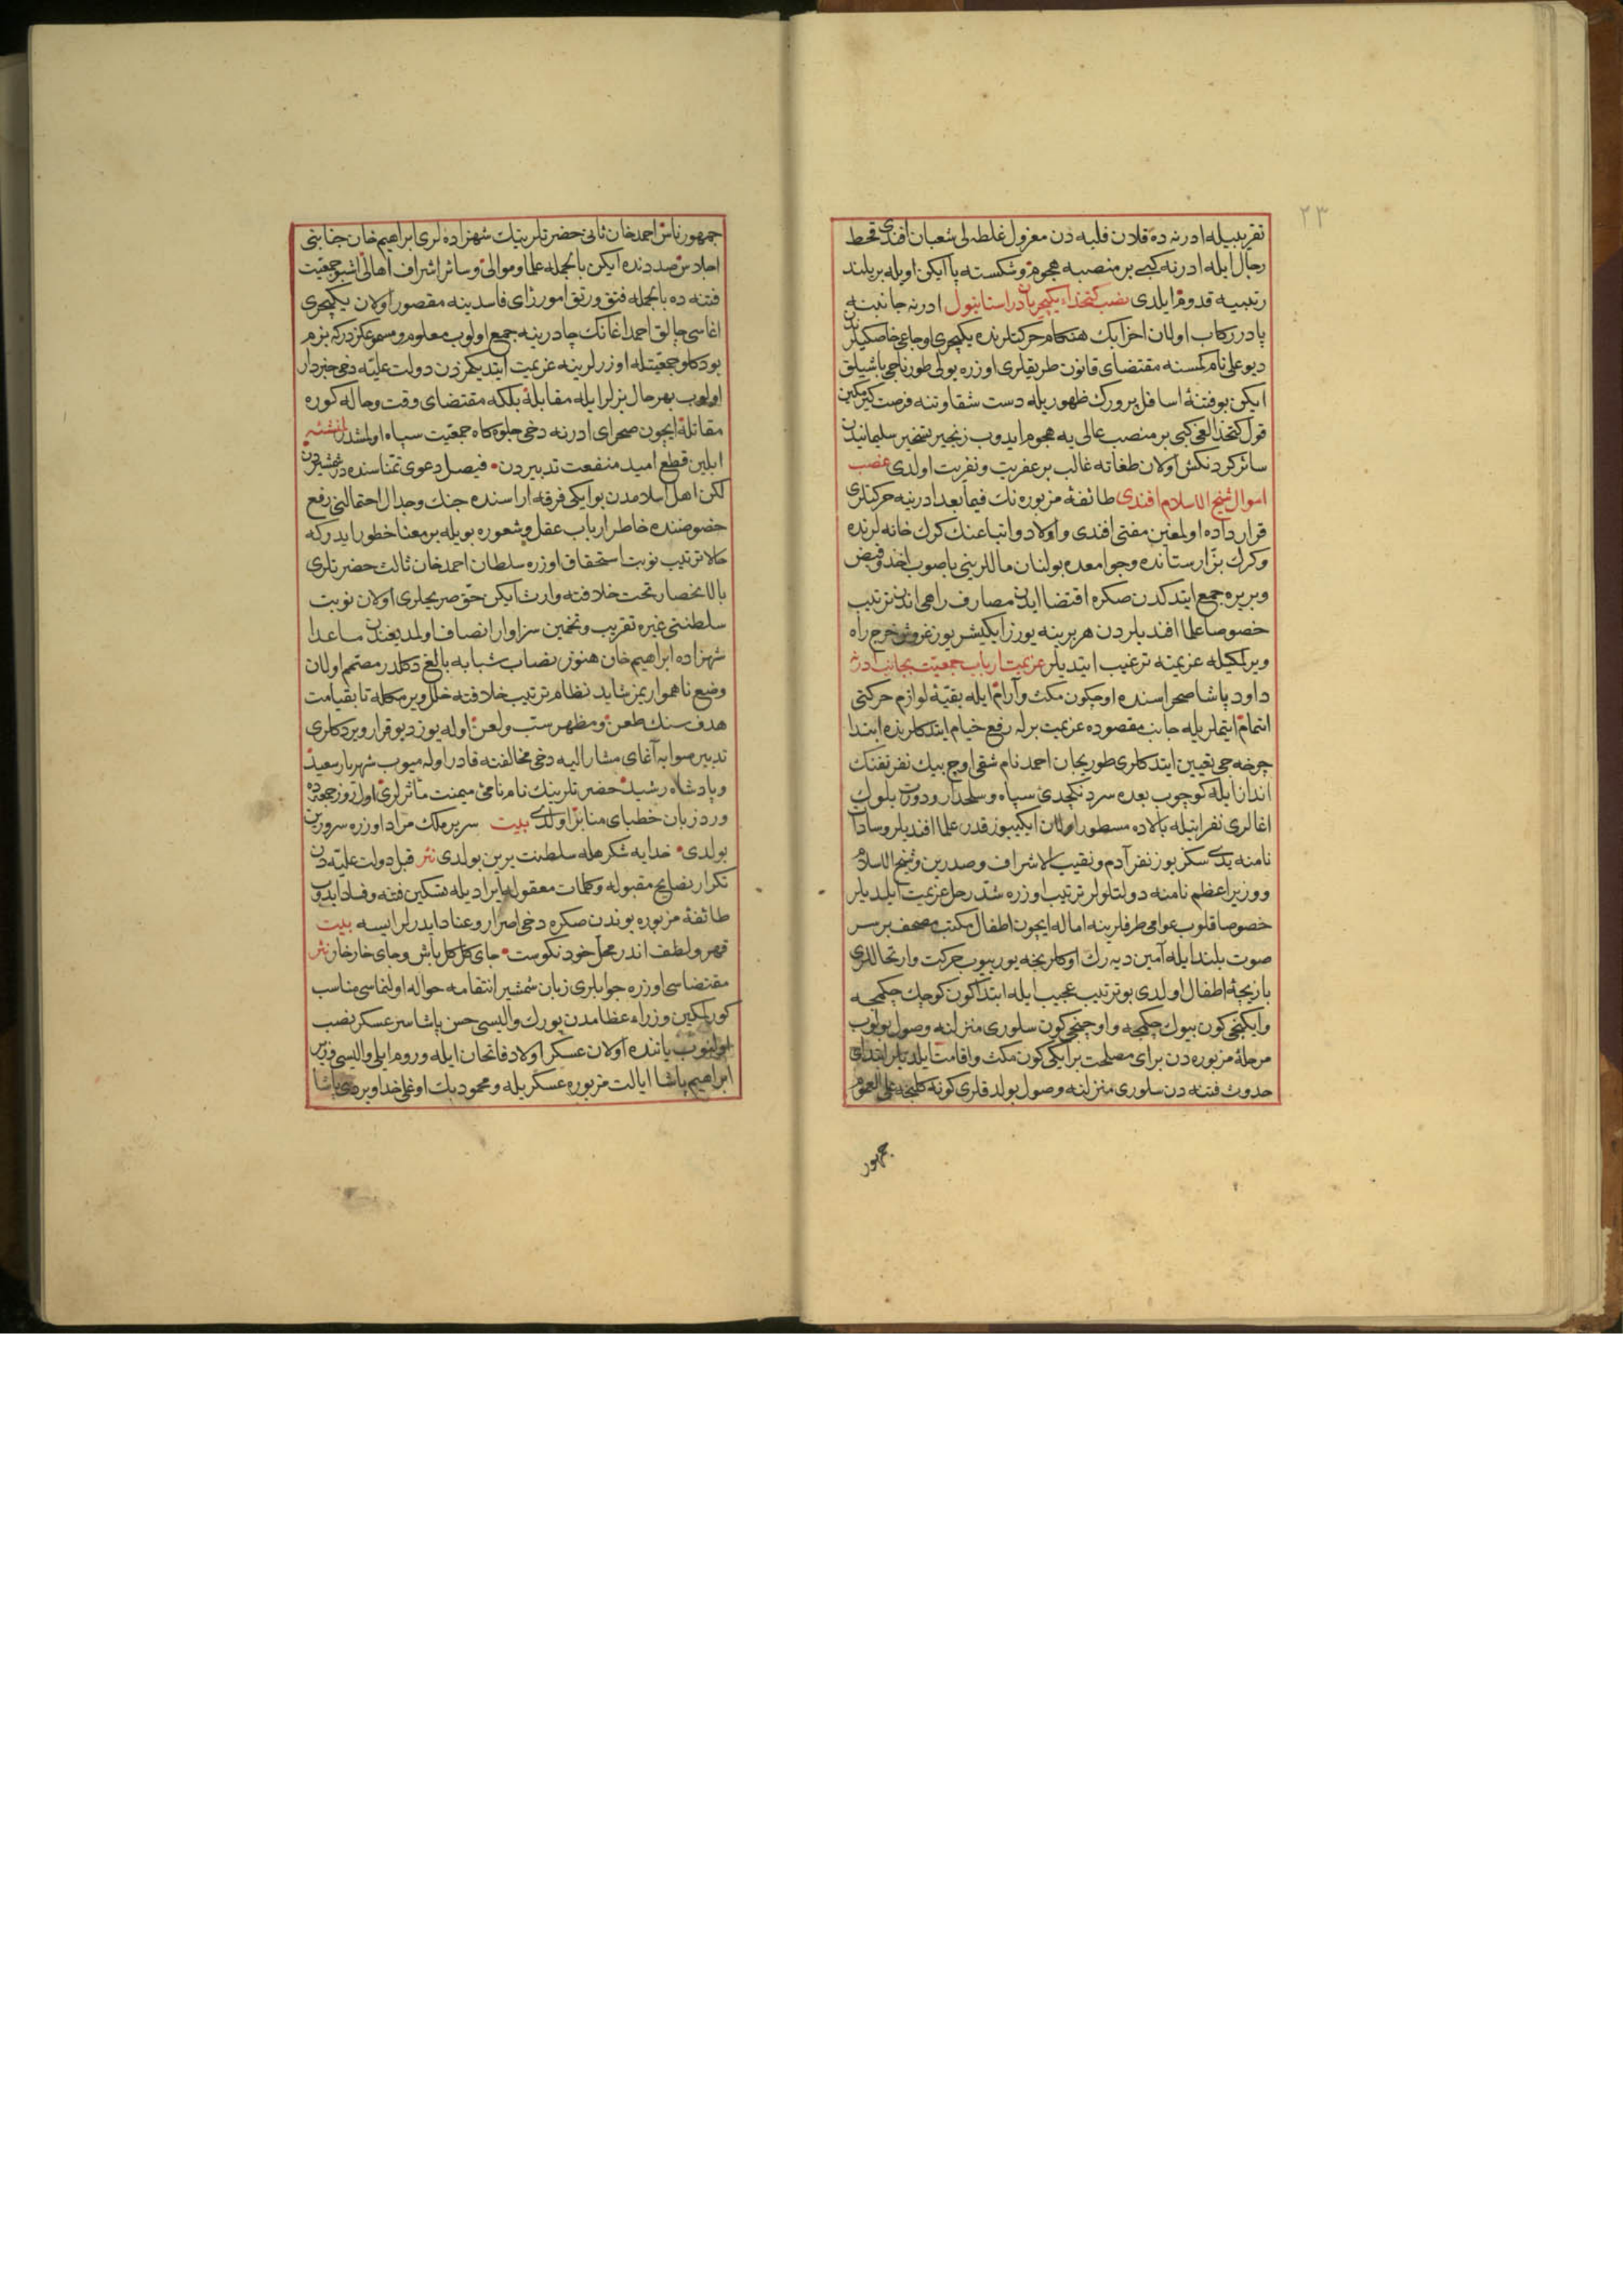 ٢٣
تقریبیله ادرنه ده قلان فلبه دن معزول غلطه لی شعبان افندی قحط
رجال ایله ادرنه کبی بر منصبه هجوم و شکسته پا ایکن اویله بر بلند
رتبیه قدوم ایلدی نصب کتخداء یکیچریان در استانبول ادرنه جانبنه
پا در رکاب اولان اخزابک هنکام حرکتلرنده یکیچری اوجاغی خاصکیلرندن
دیو علی نام کمسنه مقتضای قانون طریقلری اوزره یولی طورناجی باشیلق
ایکن بو فتنهٔ اسافل پرورک ظهوریله دست شقاوتنه فرصت کیرمکین
قول کتخدالغی کبی بر منصب عالی یه هجوم ایدوب زنجیر تسخیر سلیمانیدن
سائر کردنکش اولان طغاته غالب بر عفریت و نفریت اولدی غصب
اموال شیخ الاسلام افندی طائفهٔ مزبوره نك فیما بعد ادرینه حرکتلری
قرار داده اولمغین مفتی افندی و اولاد و اتباعنك كرك خانه لرنده
و کرك بزارستانده و جوامعده بولنان ماللرینی یا صوب اخذ و قبض
و بر یره جمع ایتدکدن صکره اقتضا ایدن مصارف راهی اندن ترتیب
خصوصا علما افندیلردن هر برینه یوزر ایکیشر یوز غروش خرج راه
ویرلمکیله عزیمته ترغیب ایتدیلر عزیمت ارباب جمعیت بجانب ادرنه
داود پاشا صحراسنده اوچکون مکث و آرام ایله بقیهٔ لوازم حرکتی
اتمام ایتملریله جانب مقصوده عزیمت برله رفع خیام ایتدکلرنده ابتدا
چرخه جی تعیین ایتدکلری طوریجان احمد نام شقی اوچ بیك نفر تفنك
انداز ایله کوچوب بعده سردنکچدی سپاه و سلحدار و دورت بلوك
اغالری نفراتیله بالاده مسطور اولان ایکیبوز قدر علما افندیلر و سادات
نامنه یدی سکز یوز نفر آدم و نقیب الاشراف و صدرین و شیخ الاسلام
و وزیر اعظم نامنه دولتلولر ترتیب اوزره شد رحل عزیمت ایلدیلر
خصوصا قلوب عوامی طرفلرینه اماله ایچون اطفال مکتب مصحف بر سر
صوت بلند ایله آمین دیه رك اوکلرنجه یوریوب حرکت و ارتحاللری
بازیچهٔ اطفال اولدی بو ترتیب عجیب ایله ابتدا کون کوچك چکمجه
و ایکنجی کون بیوك چکمجه و اوچنجی کون سلوری منزلنه وصول بولوب
مرحلهٔ مزبوره دن برای مصلحت بر ایکی کون مکث و اقامت ایلدیلر ابتدای
حدوث فتنه دن سلوری منزلنه وصول بولدقلری کونه کلنجه علی العموم
جمهور
جمهور ناس احمد خان ثانی حضرتلرینك شهزاده لری ابراهیم خان جنابنی
اجلاس صددنده ایکن بالجمله علما و موالی و سائر اشراف اهالی اشبو جمعیت
فتنه ده بالجمله فتق و رتق امور رای فاسدینه مقصور اولان یکیچری
اغاسی چالق احمد اغانك چادرینه جمع اولوب معلوم و مسموعکزدرکه بزم
بودکلو جمعیتله اوزرلرینه عزیمت ایتدیکمزدن دولت علیه دخی خبردار
اولوب بهر حال بزلر ایله مقابله بلکه مقتضای وقت و حاله کوره
مقاتله ایچون صحرای ادرنه دخی جلوه کاه جمعیت سپاه اولمشدر لمنشئه
ایلین قطع امید منفعت تدبیردن • فیصل دعوی تمناسنده در شمشیردن
لکن اهل اسلامدن بو ایکی فرقه اراسنده جنك و جدال احتمالنی رفع
خصوصنده خاطر ارباب عقل و شعوره بویله بر معنا خطور ایدرکه
حالا ترتیب نوبت استحقاق اوزره سلطان احمد خان ثالث حضرتلری
بالانحصار تخت خلافته وارث ایکن حق صریحلری اولان نوبت
سلطنتی غیره تقریب و تخمین سزاوار انصاف اولمدیغندن ماعدا
شهزاده ابراهیم خان هنوز نصاب شبابه بالغ دکلدر مصمم اولان
وضع ناهمواریمز شاید نظام ترتیب خلافته خلل ویرمکله تا بقیامت
هدف سنك طعن و مظهر سب و لعن اوله یوز دیو قرار ویردکلری
تدبیر صوابه آغای مشار الیه دخی مخالفته قادر اوله میوب شهریار سعید
و پادشاه رشید حضرتلرینك نام نامئ میمنت مآثرلری اول روز جمعه ده
ورد زبان خطبای منابر اولدی بیت سریر ملك مراد اوزره سرورین
بولدی • خدایه شکر هله سلطنت یرین بولدی نثر قبل دولت علیه دن
تکرار نصایح مقبوله و کلمات معقوله ایرادیله تسکین فتنه و فساد ایدوب
طائفهٔ مزبوره بوندن صکره دخی اصرار و عناد ایدرلر ایسه بیت
قهر و لطف اندر محل خود نکوست • جای کل کل باش و جای خار خار نثر
مقتضاسی اوزره جوابلری زبان شمشیر انتقامه حواله اولنماسی مناسب
کورلمکین وزراء عظامدن یورك والیسی حسن پاشا سرعسکر نصب
اولنوب یاننده اولان عسکر اولاد فاتحان ایله و روم ایلی والیسی وزیر
ابراهیم پاشا ایالت مزبوره عسکریله و محمود بك اوغلی خداویردی پاشا